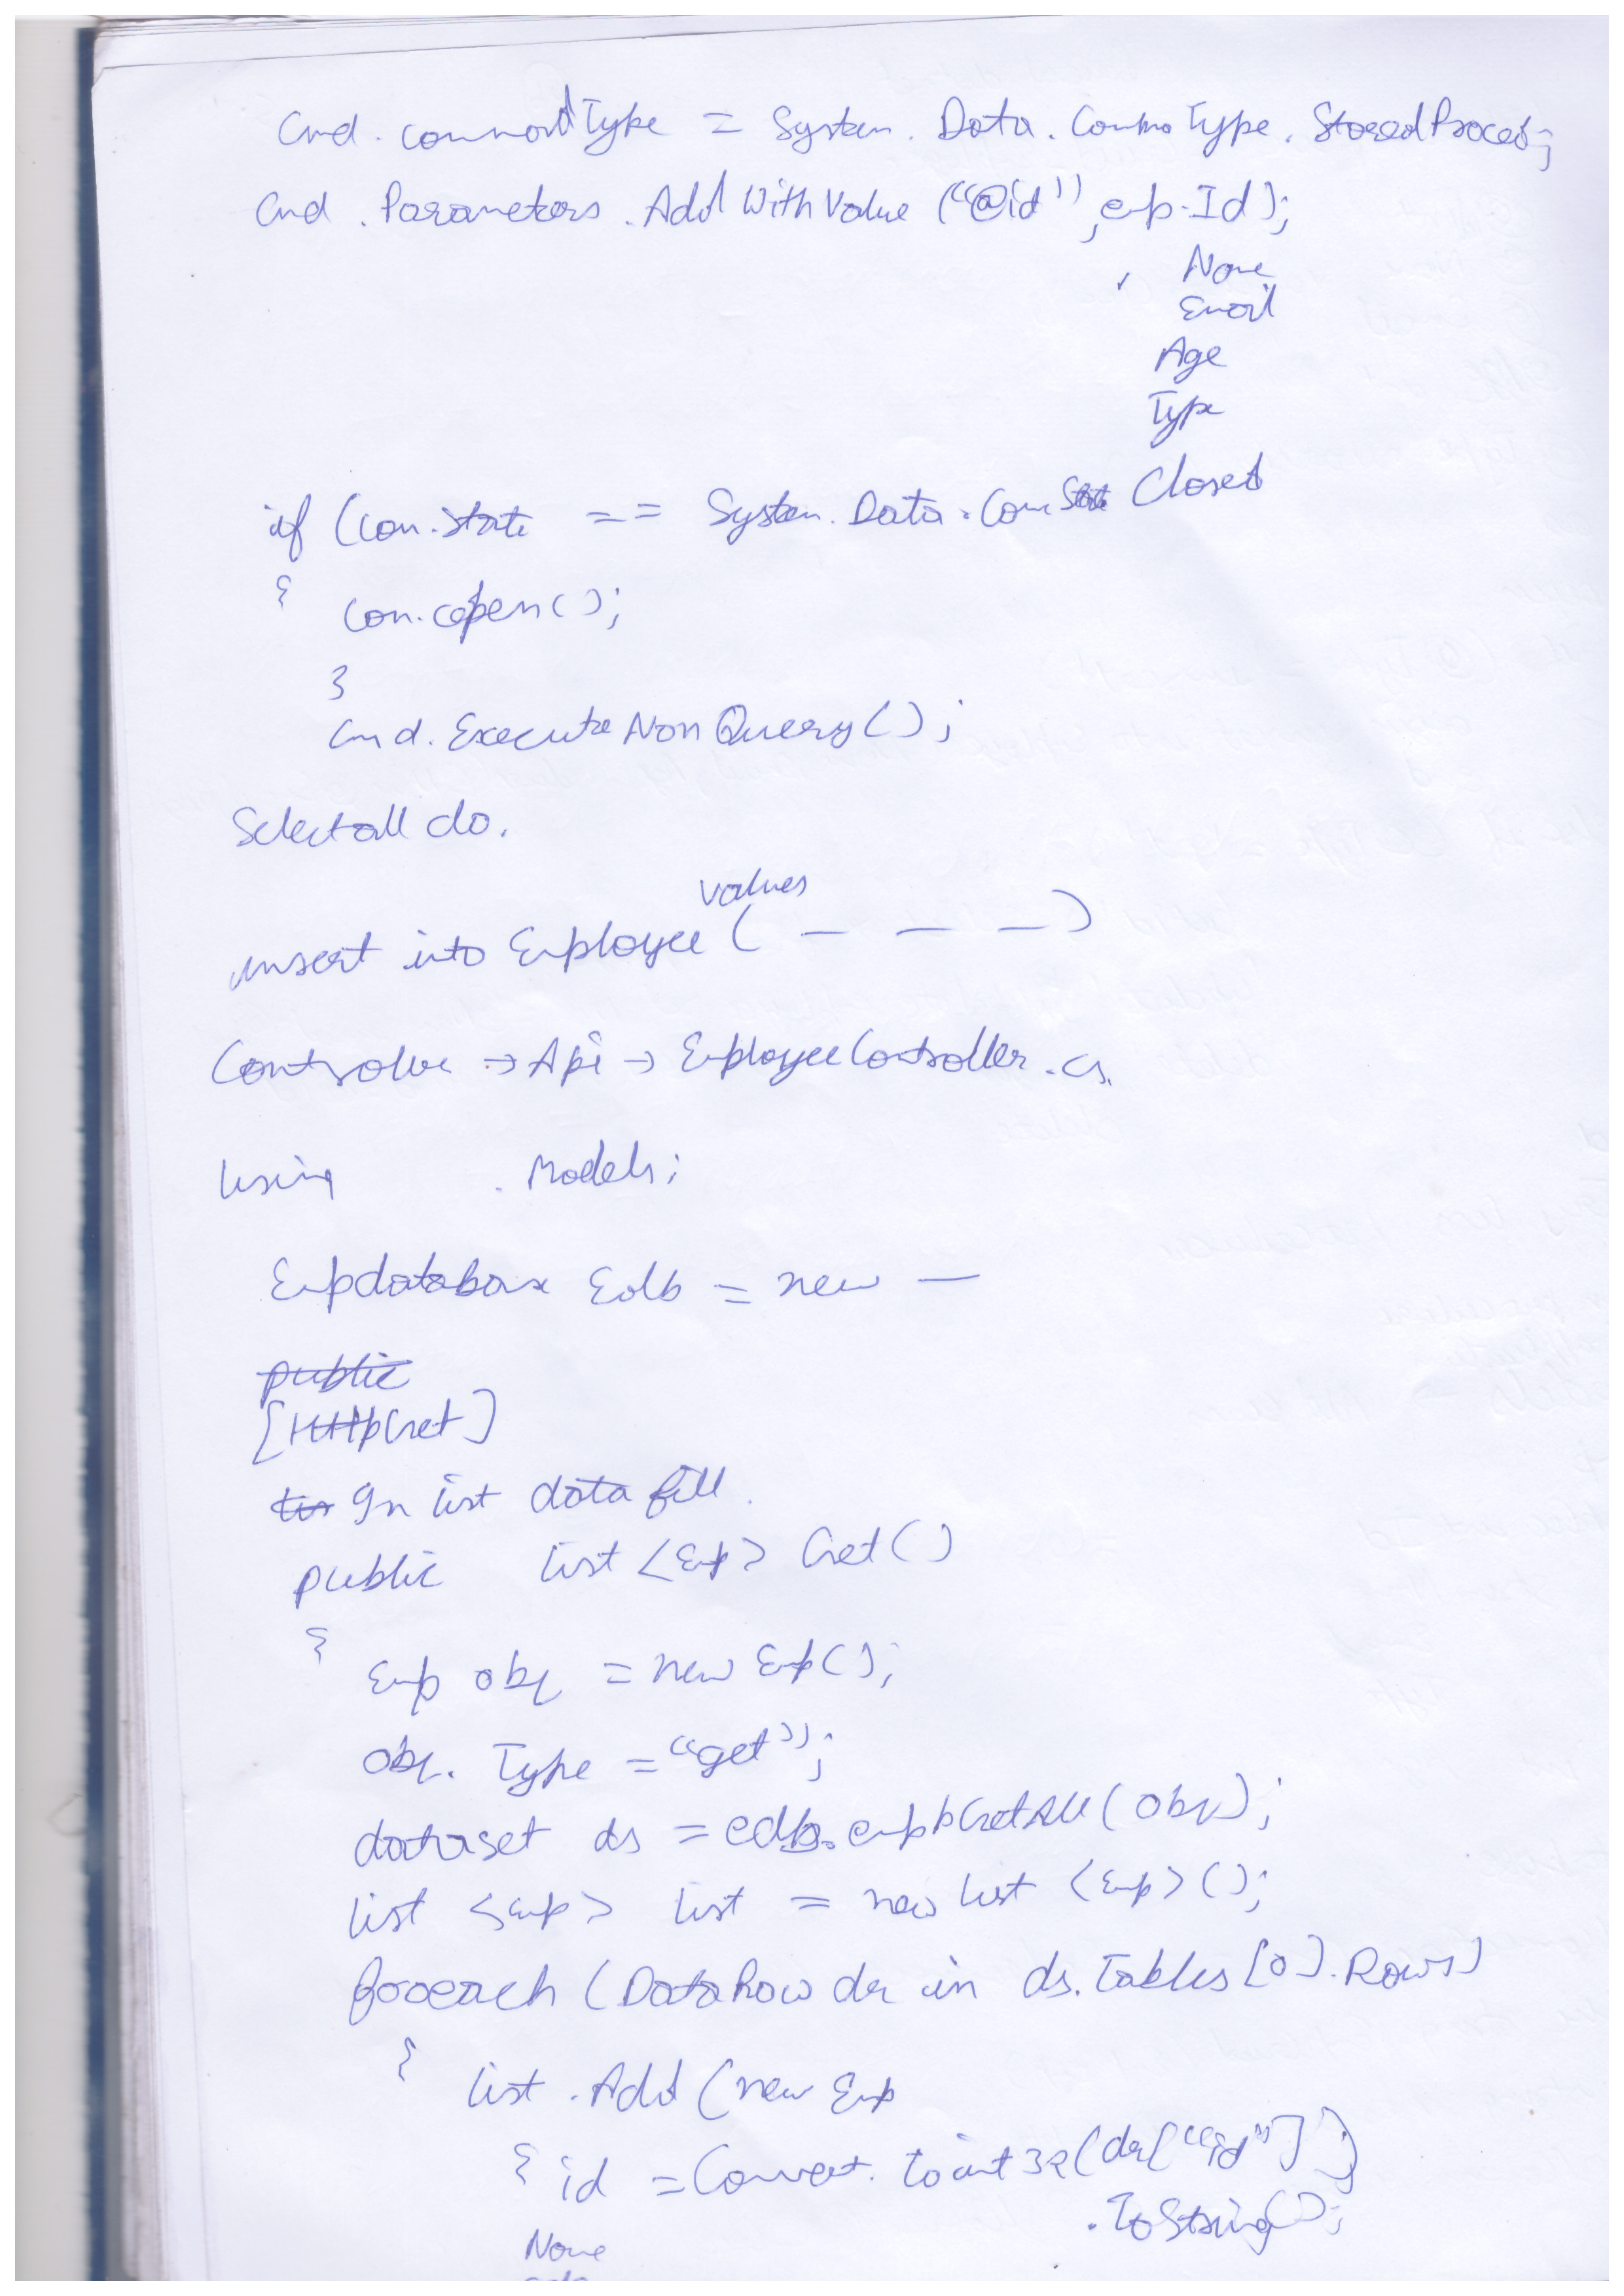 Cmd. commandType = System. Data. CommaType. StoredProced;
Cmd. Parameters. Add With Value ("@id", emp.Id);
, Name
Email
Age
Type
if (con.state == System. Data. Con State Closed
{ con.open();
}
Cmd. Execute Non Query();
Selectall do.
values
insert into Employee ( — — — )
Controller → Api → EmployeeController.cs.
Using . Models;
Empdatabase Edb = new —
public
[HttpGet]
In list data fill.
public list <Emp> Get()
{ Emp obj = new Emp();
obj. Type = "get";
dataset ds = edb. empGetAll (obj);
list <emp> list = new list <Emp>();
foreach (DataRow dr in ds. Tables[0]. Rows)
{ list. Add (new Emp
{ id = Convert. toint32(dr["id"])
.ToString();
Name